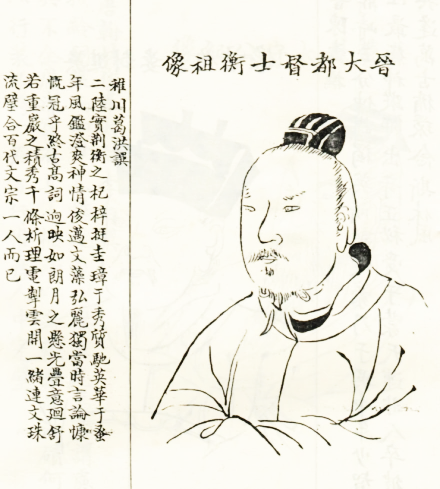 晉大都督士衡祖像
稚川葛洪譔
二陸實荊衡之杞梓挺圭璋于秀實馳英華于蚤
年風鑑澄爽神情俊邁文藻弘麗獨當時言論慷
慨冠乎終古高詞迥映如朗月之懸光疊意迴舒
若重巖之積秀千條析理電掣雲開一緒連文珠
流璧合百代文宗一人而已